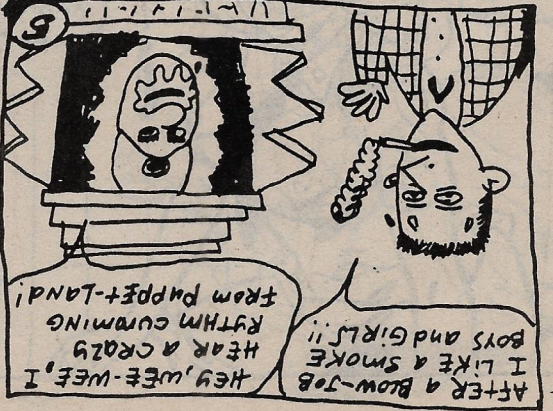 AFTER A BLOW-JOB
I LIKE A SMOKE
BOYS AND GIRLS!!
HEY, WEE-WEE, I
HEAR A CRAZY
RYTHM CUMMING
FROM PUPPET-LAND!
5